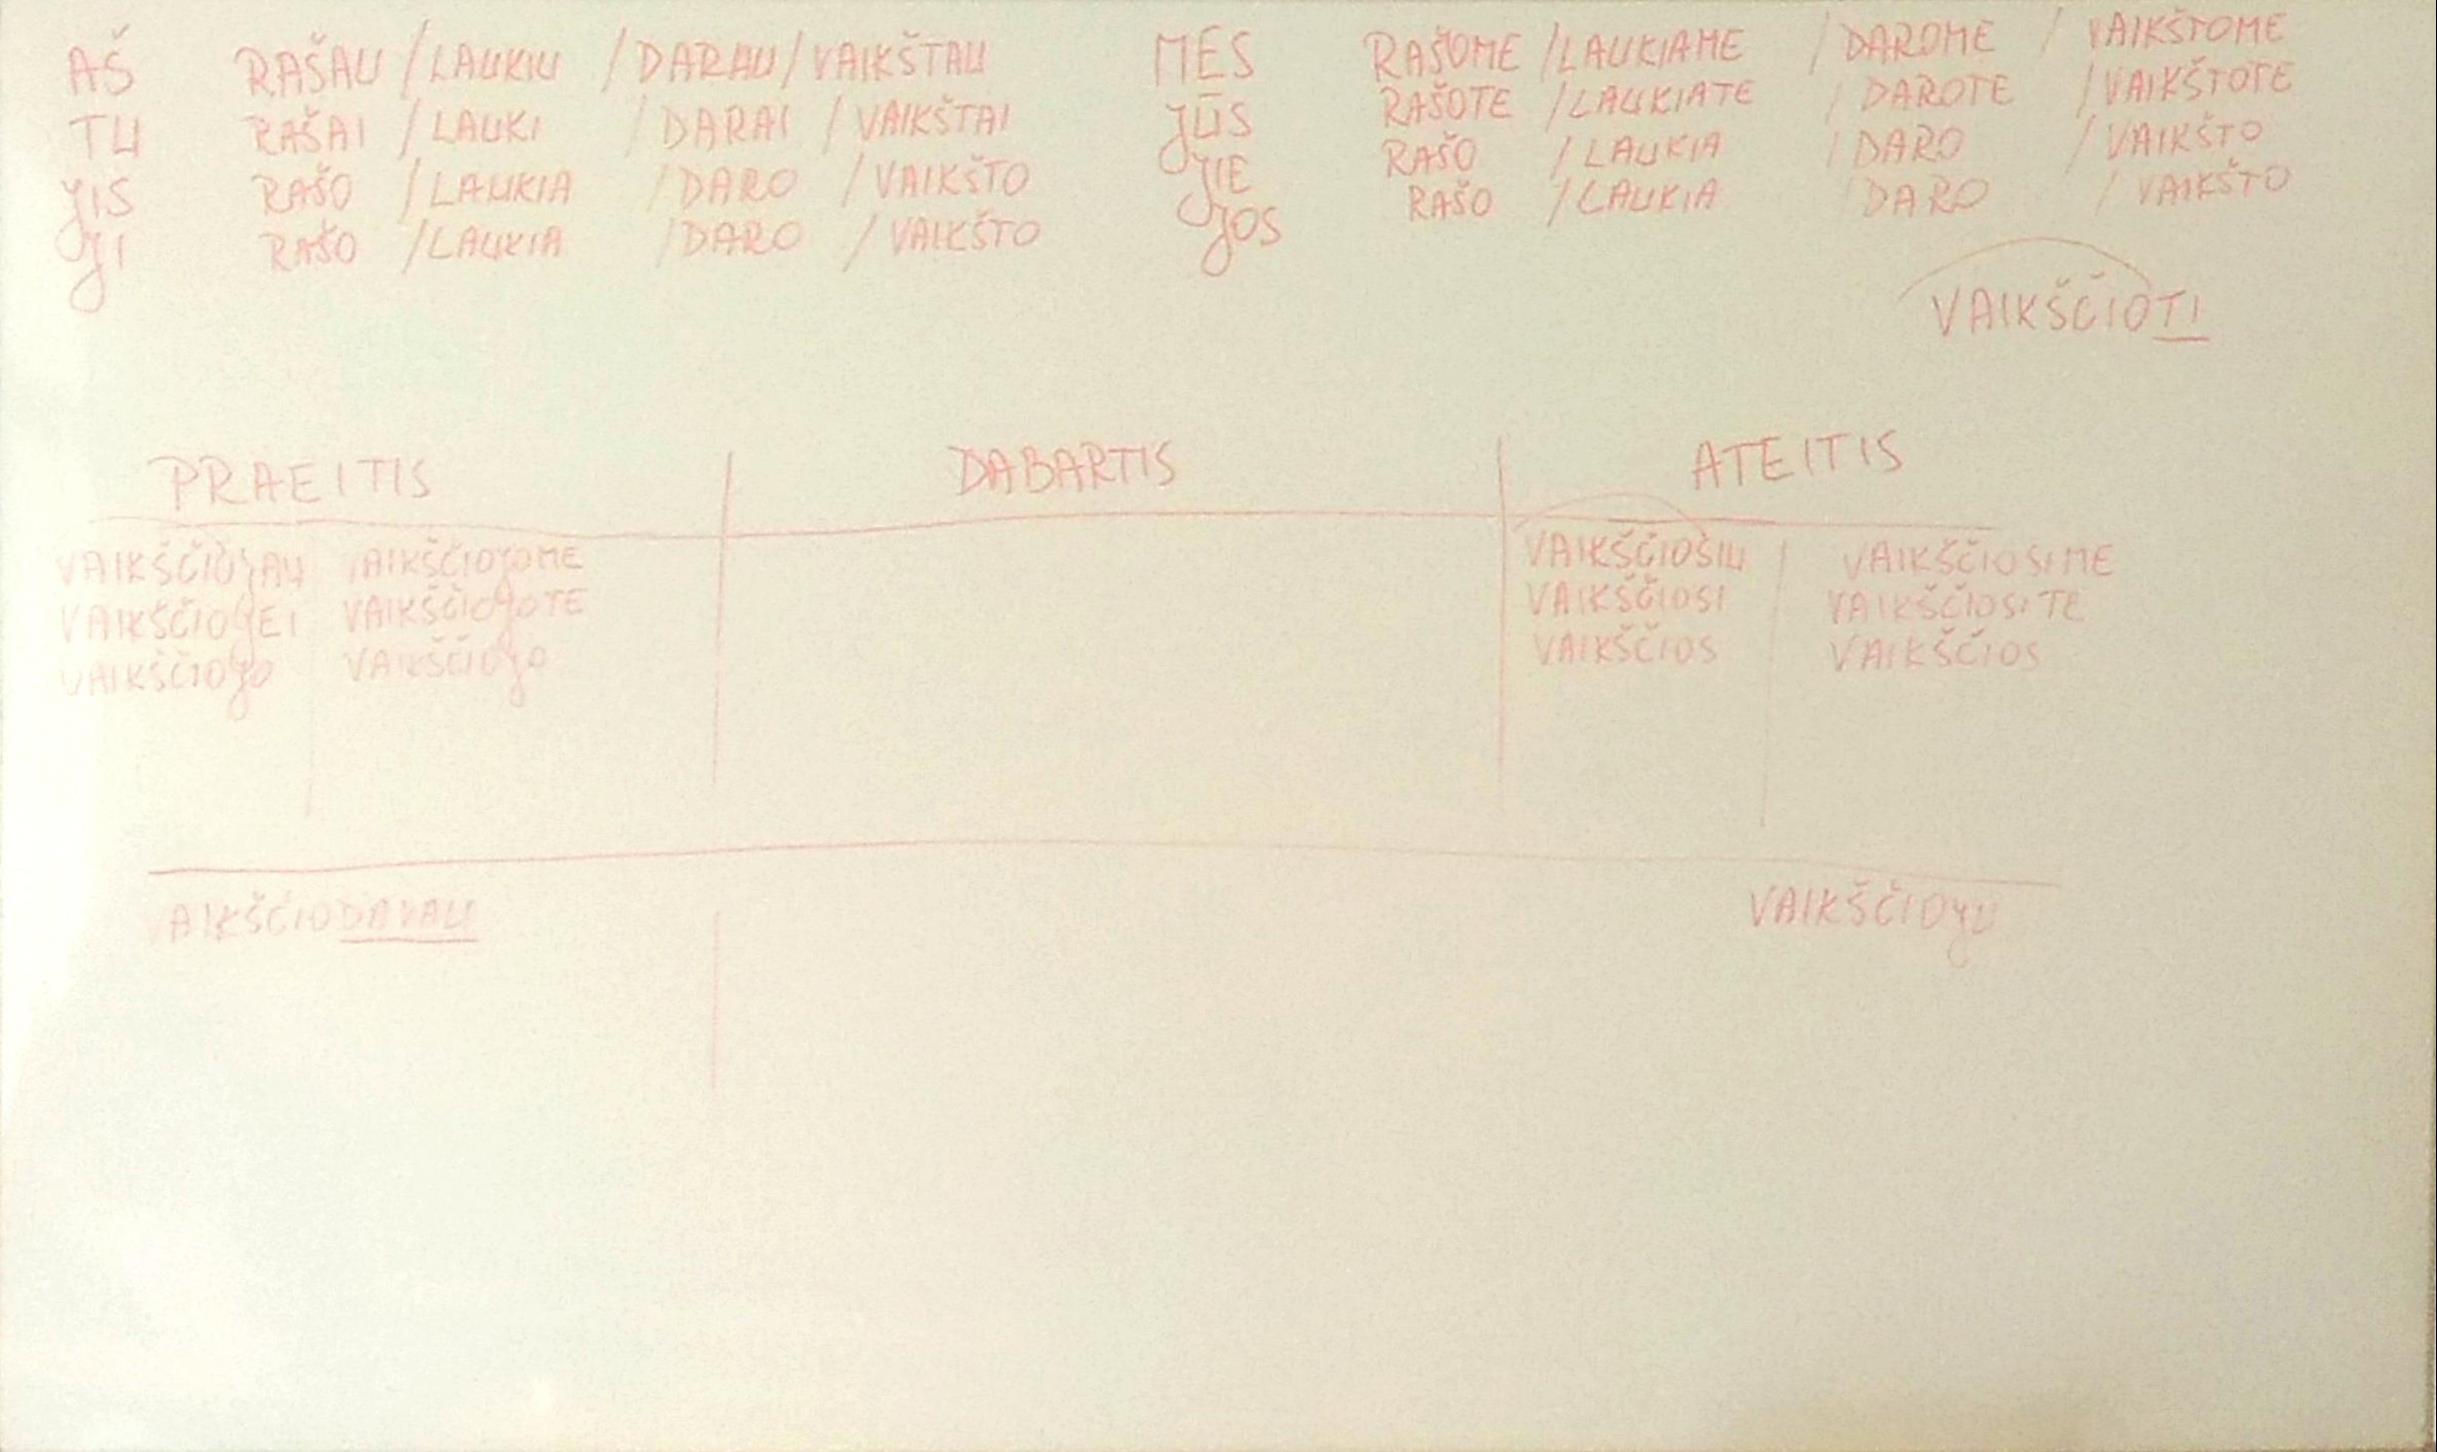 AŠ RAŠAU / LAUKIU / DARAU / VAIKŠTAU
TU RAŠAI / LAUKI / DARAI / VAIKŠTAI
JIS RAŠO / LAUKIA / DARO / VAIKŠTO
JI RAŠO / LAUKIA / DARO / VAIKŠTO
MES RAŠOME / LAUKIAME / DAROME / VAIKŠTOME
JŪS RAŠOTE / LAUKIATE / DAROTE / VAIKŠTOTE
JIE RAŠO / LAUKIA / DARO / VAIKŠTO
JOS RAŠO / LAUKIA / DARO / VAIKŠTO
VAIKŠČIOTI
PRAEITIS DABARTIS ATEITIS
VAIKŠČIOJAU VAIKŠČIOJOME VAIKŠČIOŠIU VAIKŠČIOSIME
VAIKŠČIOJEI VAIKŠČIOJOTE VAIKŠČIOSI VAIKŠČIOSITE
VAIKŠČIOJO VAIKŠČIOJO VAIKŠČIOS VAIKŠČIOS
VAIKŠČIODAVAU VAIKŠČIOJU